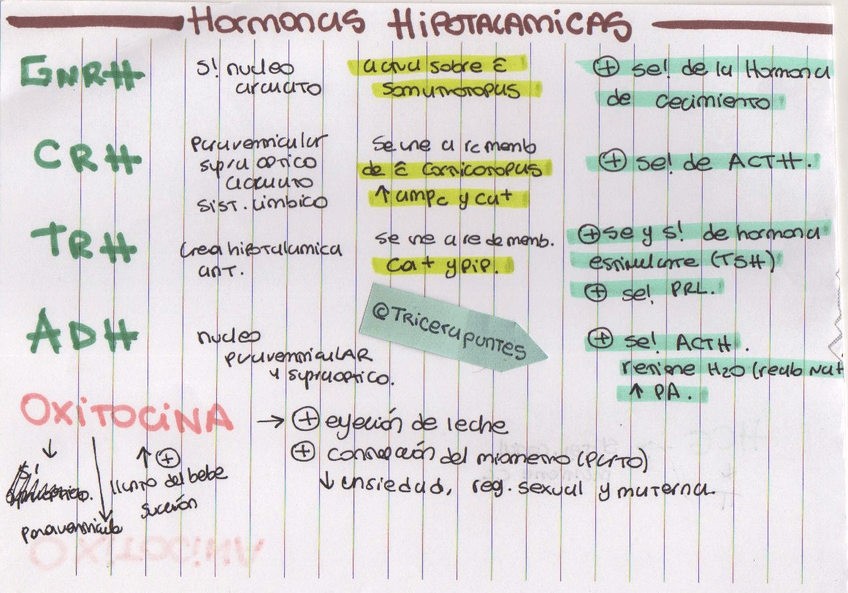 Hormonas HIPOTALAMICAS
GNRH
s! nucleo
arcuato
actua sobre ɛ
somatotropas
⊕ se! de la Hormona
de cecimiento
CRH
paraventricular
supraoptico
arcuato
sist. limbico
se une a re memb
de ɛ corticotropas
↑ ampc y ca+
⊕ se! de ACTH.
TRH
crea hipotalamica
ant.
se une a re de memb.
ca+ y pip.
⊕ se y s! de hormona
estimulante (TSH)
⊕ se! PRL.
ADH
nucleo
paraventricular
y supraoptico.
@Tricerapuntes
⊕ se! ACTH.
retiene H2O (reab Na+
↑ PA.
OXITOCINA
→ ⊕ eyección de leche
⊕ contracción del miometrio (PARTO)
↓ ansiedad, reg. sexual y materna.
↓
s!
paraventricula
↑ ⊕
llanto del bebe
succión